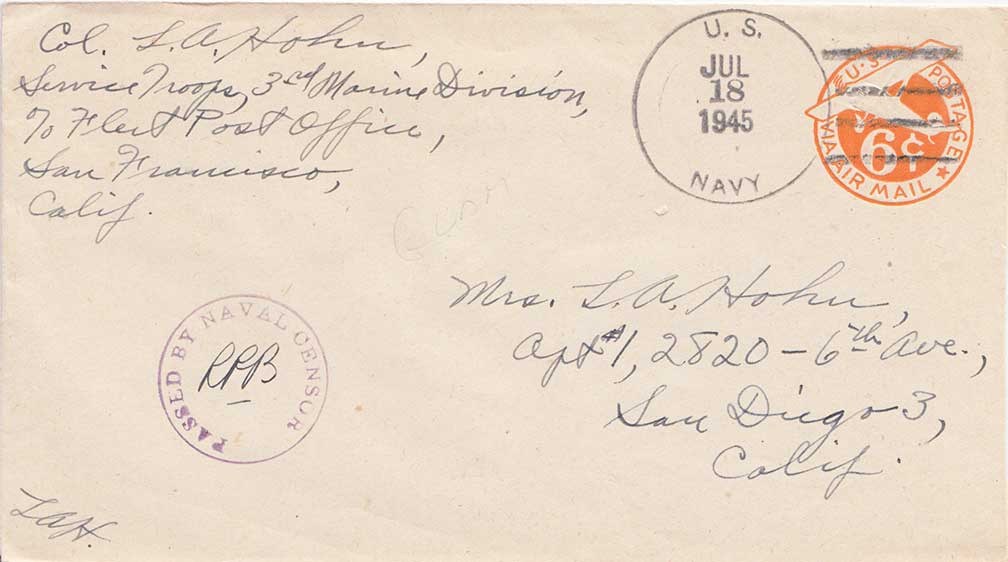 Col. L. A. Hohn,
Service Troops, 3rd Marine Division,
℅ Fleet Post Office,
San Francisco,
Calif.
U. S.
JUL
18
1945
NAVY
U.S. POSTAGE
6¢
VIA AIR MAIL
Mrs. L. A. Hohn,
Apt #1, 2820 - 6th Ave.,
San Diego 3,
Calif.
PASSED BY NAVAL CENSOR
RPB
LAH.